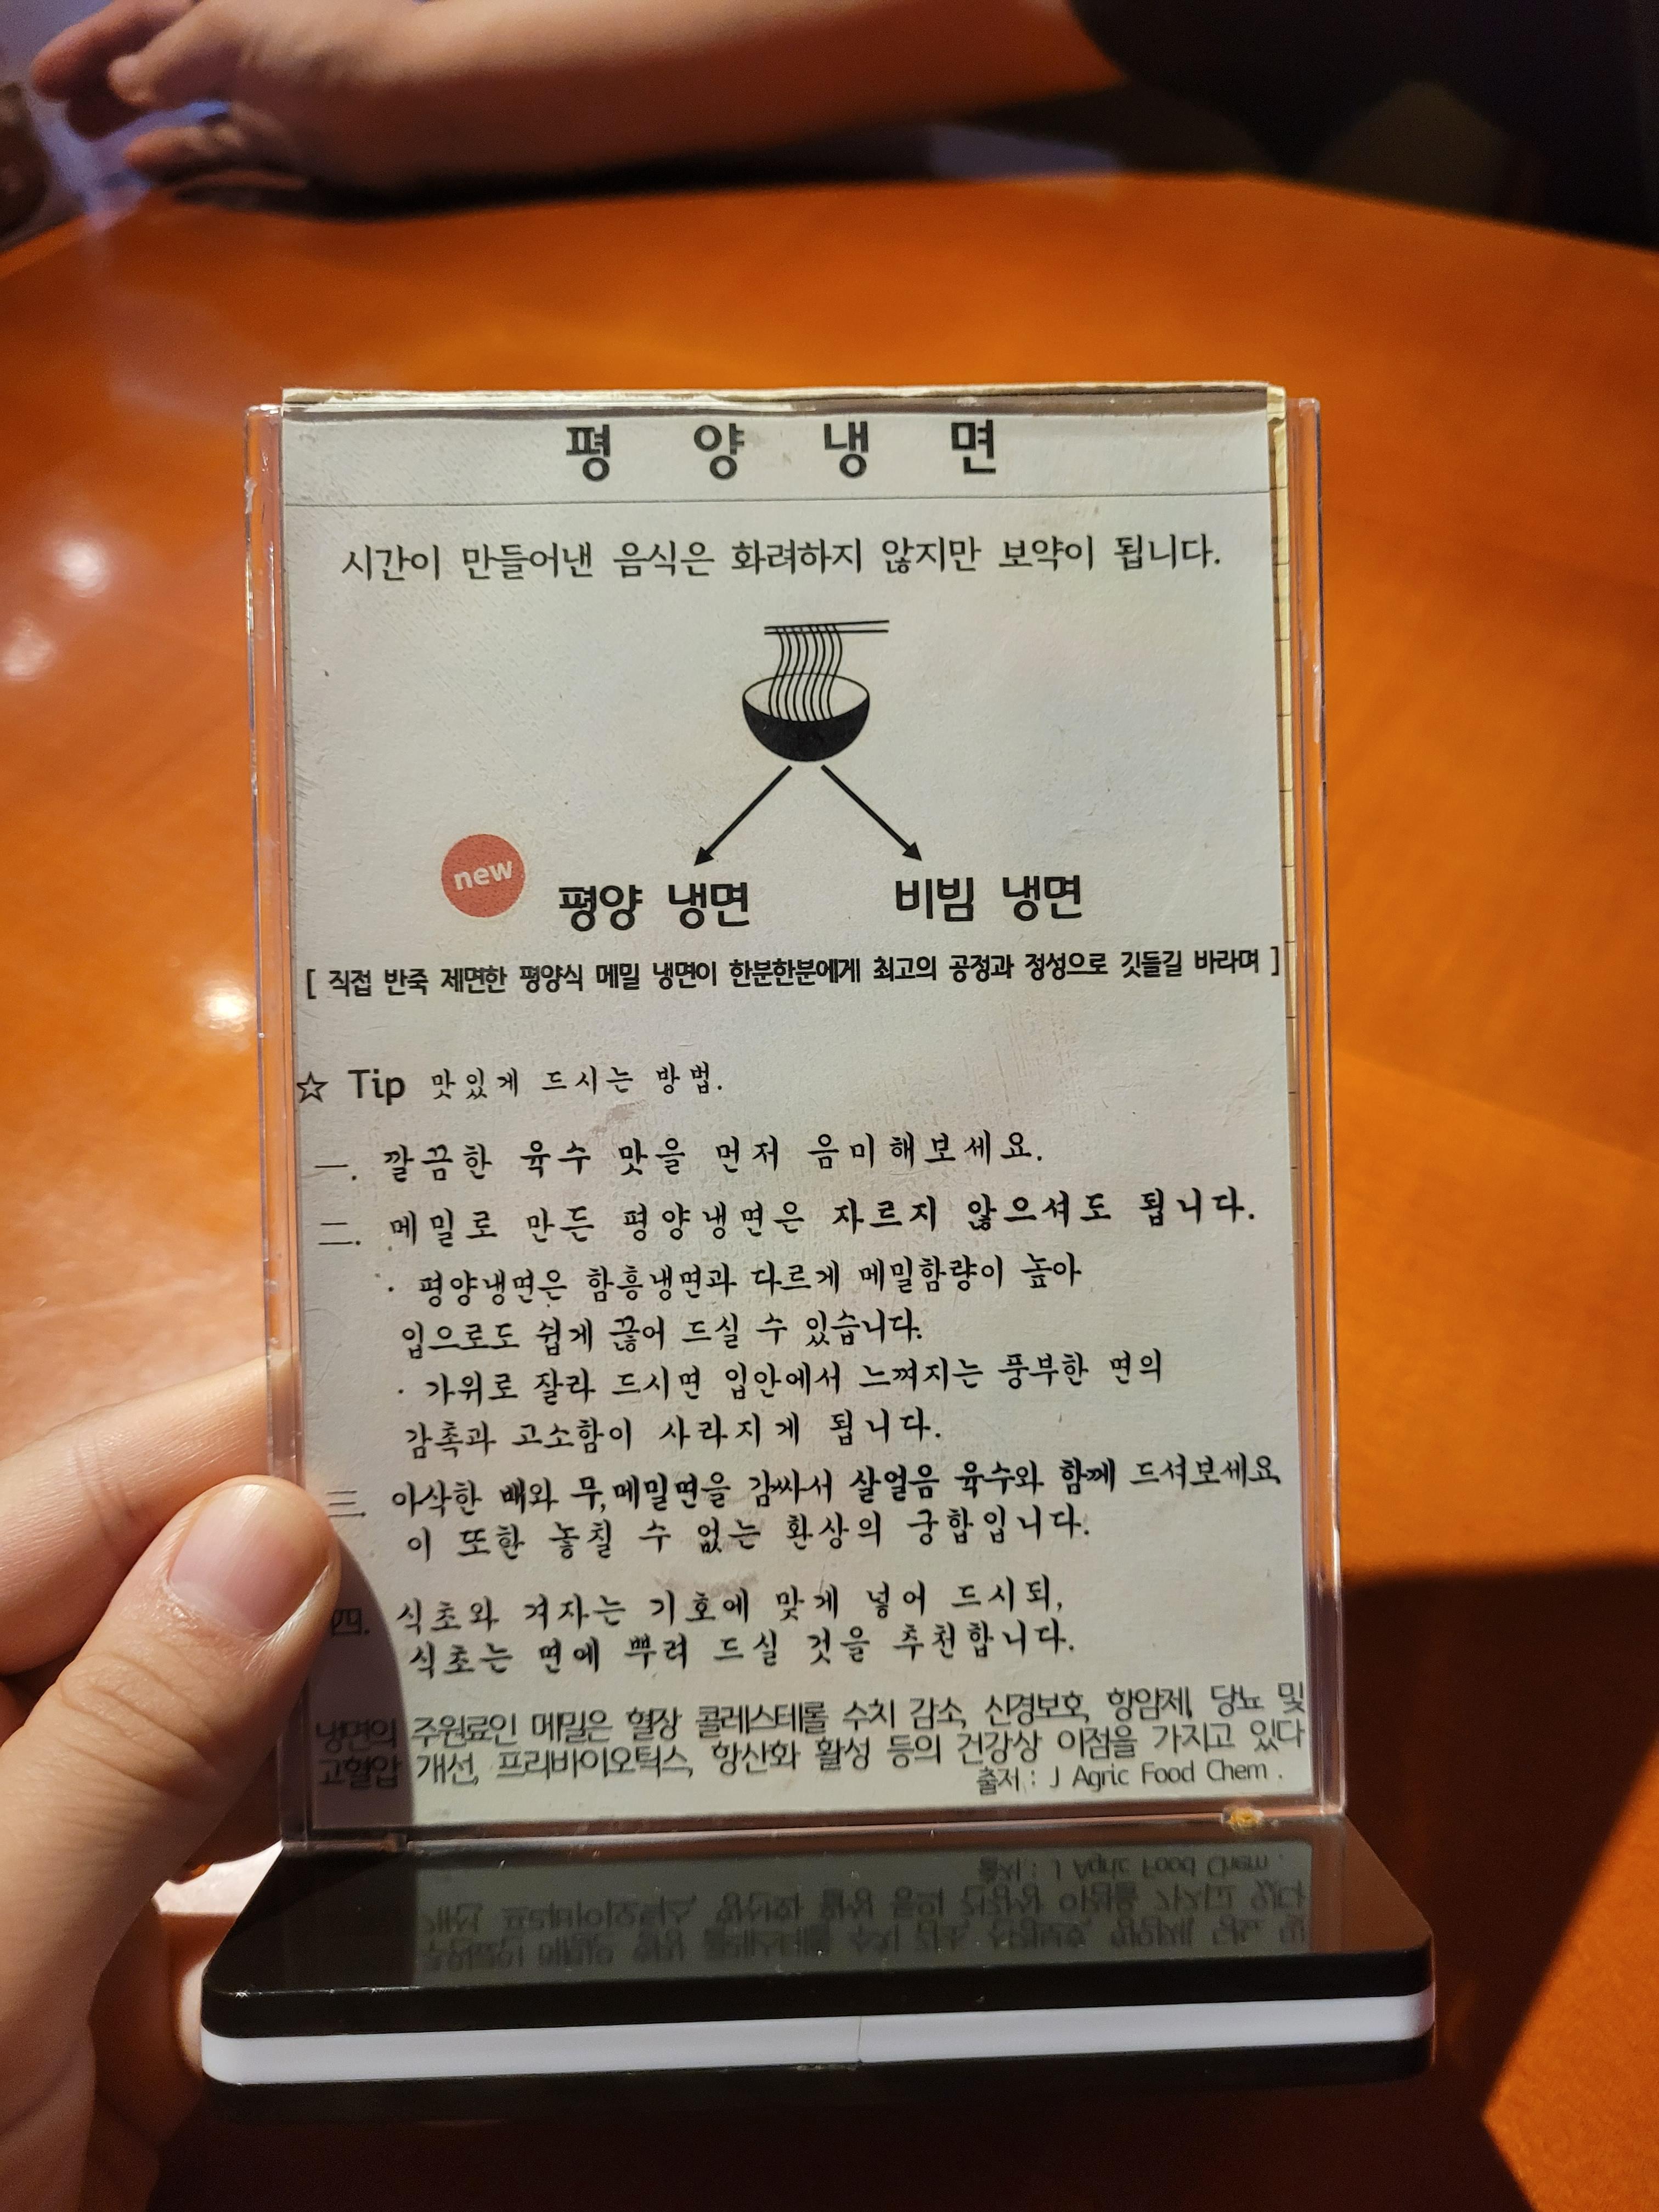 평 양 냉 면
시간이 만들어낸 음식은 화려하지 않지만 보약이 됩니다.
new
평양 냉면 비빔 냉면
[ 직접 반죽 제면한 평양식 메밀 냉면이 한분한분에게 최고의 공정과 정성으로 깃들길 바라며 ]
☆ Tip 맛있게 드시는 방법.
一. 깔끔한 육수 맛을 먼저 음미해보세요.
二. 메밀로 만든 평양냉면은 자르지 않으셔도 됩니다.
· 평양냉면은 함흥냉면과 다르게 메밀함량이 높아
입으로도 쉽게 끊어 드실 수 있습니다.
· 가위로 잘라 드시면 입안에서 느껴지는 풍부한 면의
감촉과 고소함이 사라지게 됩니다.
三. 아삭한 배와 무,메밀면을 감싸서 살얼음 육수와 함께 드셔보세요
이 또한 놓칠 수 없는 환상의 궁합입니다.
四. 식초와 겨자는 기호에 맞게 넣어 드시되,
식초는 면에 뿌려 드실 것을 추천합니다.
냉면의 주원료인 메밀은 혈장 콜레스테롤 수치 감소, 신경보호, 항암제, 당뇨 및
고혈압 개선, 프리바이오틱스, 항산화 활성 등의 건강상 이점을 가지고 있다
출저 : J Agric Food Chem .